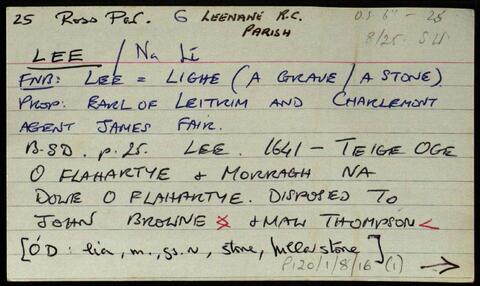 25 Ross Par. G LEENANE R.C. PARISH
O.S. 6" - 25
8/25. S.W
LEE / Na Lí
FNB: LEE = LIGHE (A GRAVE / A STONE).
PROP: EARL OF LEITRIM AND CHARLEMONT
AGENT JAMES FAIR.
B.SD. p. 25. LEE. 1641 – TEIGE OGE
O FLAHARTYE & MORRAGH NA
DOWE O FLAHARTYE. DISPOSED TO
JOHN BROWNE & MAW THOMPSON <
[Ó'D: lia, m., gs. n, stone,
P120/1/8/16 (1)